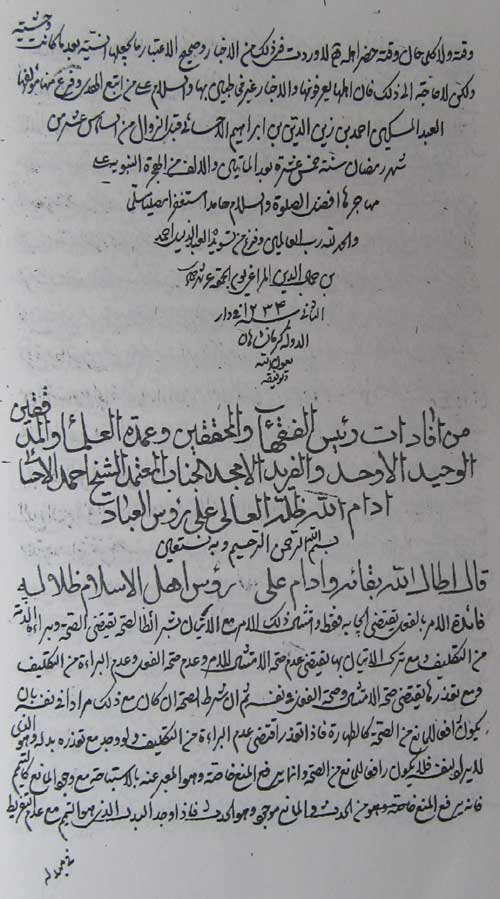 وقته ولا كل حال وقته حضر اهله لاوردت فى ذلك من الاخبار وصحيح الاعتبار ما يجعلها انسية بعد ما كانت وحشية
ولكن لا حاجة الى ذلك فان اهلها يعرفونها والاخبار غير فى طالبى بها والسلام على من اتبع الهدى وفرغ منها مؤلفها
العبد المسكين احمد بن زين الدين بن ابراهيم الاحسائى قبل الزوال من السادس عشر من
شهر رمضان سنة خمس عشرة بعد المائتين والالف من الهجرة النبوية على
مهاجرها افضل الصلوة والسلام حامدا مستغفرا مصليا مسلما
والحمد لله رب العالمين وفرغ من تسويده العبد
بن الدين المراغى يوم الجمعة
الثانى سنة ١٢٣٤ فى دار
الدولة كرمانشاهان
بعون الله
وتوفيقه
من افادات رئيس الفقهاء والمحققين وعمدة العلماء والمدققين
الوحيد الاوحد والفريد الامجد الجناب المعتمد الشيخ احمد الاحسائى
ادام الله ظله العالى على رؤس العباد
بسم الله الرحمن الرحيم وبه نستعين
قال اطال الله بقائه وادام على رؤس اهل الاسلام ظلاله
فائدة الامر بالفعل يقتضى ايجابه فقط وامتثال ذلك الامر مع الاتيان بشرائط الصحة يقتضى الصحة وبراءة الذمة
من التكليف ومع ترك الاتيان بها يقتضى عدم صحة الامتثال للامر وعدم صحة الفعل وعدم البراءة من التكليف
ومع تعذرها يقتضى صحة الامتثال وصحة الفعل فى نفسه ثم ان شرط الصحة ان كان مع ذلك مرادا فى نفسه بان
يكون رافعا للمانع من الصحة كالطهارة فاذا تعذر اقتضى عدم البراءة من التكليف ولو وجد مع تعذره بدله وهو الذى
ليس فلا يكون رافعا للمانع من الصحة وانما يرفع المنع خاصة وهو المعبر عنه بالاستباحة مع وجود المانع كالتيمم
فانه يرفع المنع خاصة وهو من الحدث والمانع موجود وهو الحدث فاذا وجد البدل الذى هو التيمم مع عدم التفريط